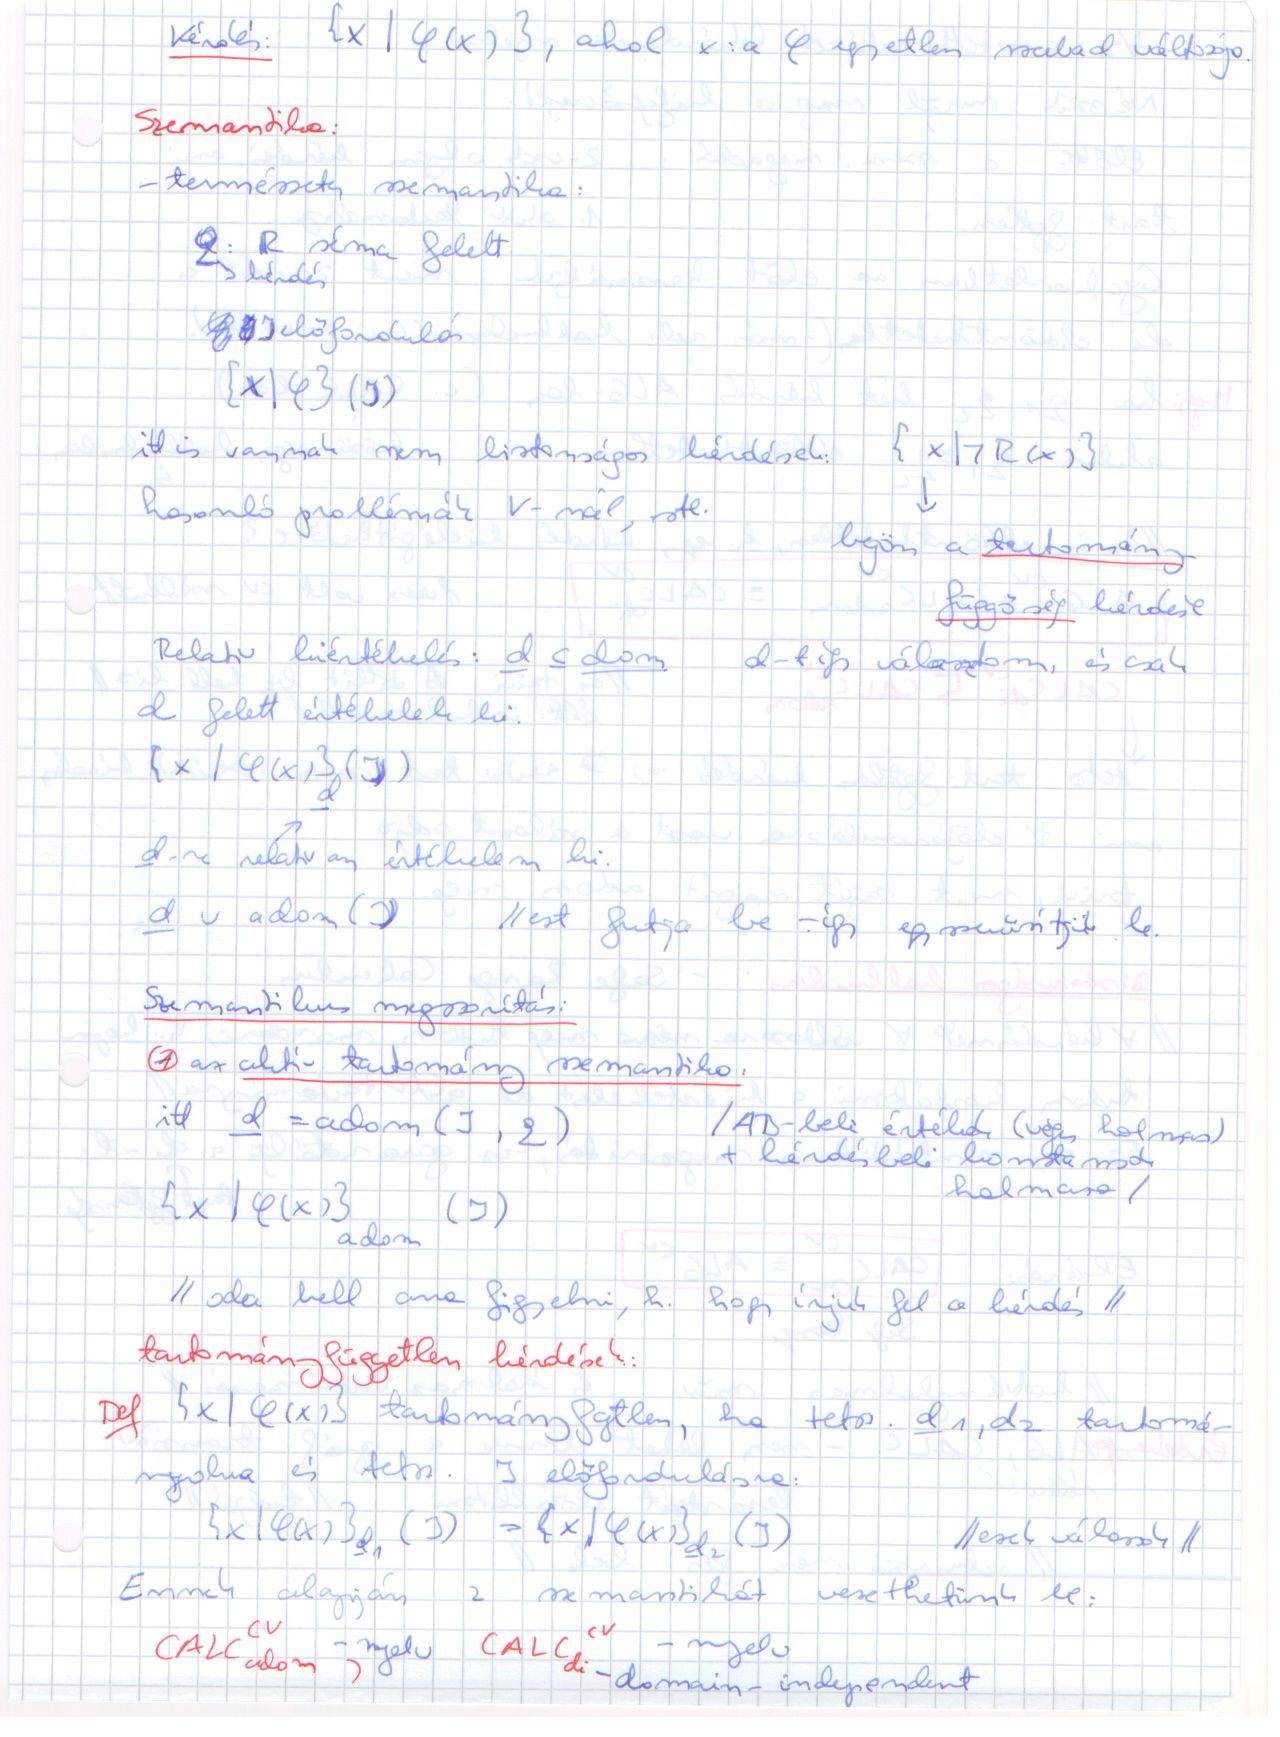 Kérdés: {x | φ(x)}, ahol x: a φ egyetlen szabad változója.
Szemantika:
- természetes szemantika:
q: R séma felett
↘ kérdés
I előfordulás
{x | φ} (I)
itt is vannak nem biztonságos kérdések: {x | ¬R(x)}
hasonló problémák ∀-nál, stb.
↓
bejön a tartomány
függőség kérdése
Relatív kiértékelés: d ⊆ dom d-t így választom, és csak
d felett értékelek ki.
{x | φ(x)}d (I)
d-re relatívan értékelem ki.
d ∪ adom(I) // ezt futja be - így egyszerűsítjük le.
Szemantikus megszorítás:
① az aktív tartomány szemantika:
itt d = adom(I, q) /AB-beli értékek (véges halmaz)
+ kérdésbeli konstansok
halmaza /
{x | φ(x)}adom (I)
// oda kell arra figyelni, h. hogy írjuk fel a kérdés //
tartományfüggetlen kérdések:
Def {x | φ(x)} tartományfgtlen, ha tetsz. d1, d2 tartomá-
nyokra és tetsz. I előfordulásra:
{x | φ(x)}d1 (I) = {x | φ(x)}d2 (I) // ezek válaszok //
Ennek alapján 2 szemantikát vezethetünk be:
CALC^CV_adom - nyelv, CALC^CV_di - nyelv
- domain-independent